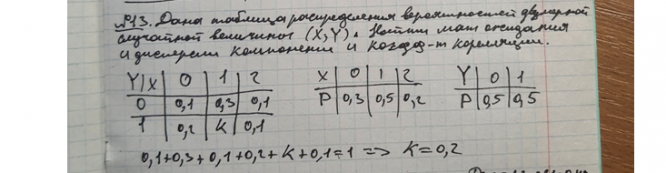 №13. Дана таблица распределения вероятностей двумерной
случайной величины (X,Y). Найти мат ожидания
и дисперсии компонент и коэфф-т корреляции.
Y/X 0 1 2 X 0 1 2 Y 0 1
0 0,1 0,3 0,1 P 0,3 0,5 0,2 P 0,5 0,5
1 0,2 K 0,1
0,1+0,3+0,1+0,2+K+0,1=1 => K=0,2